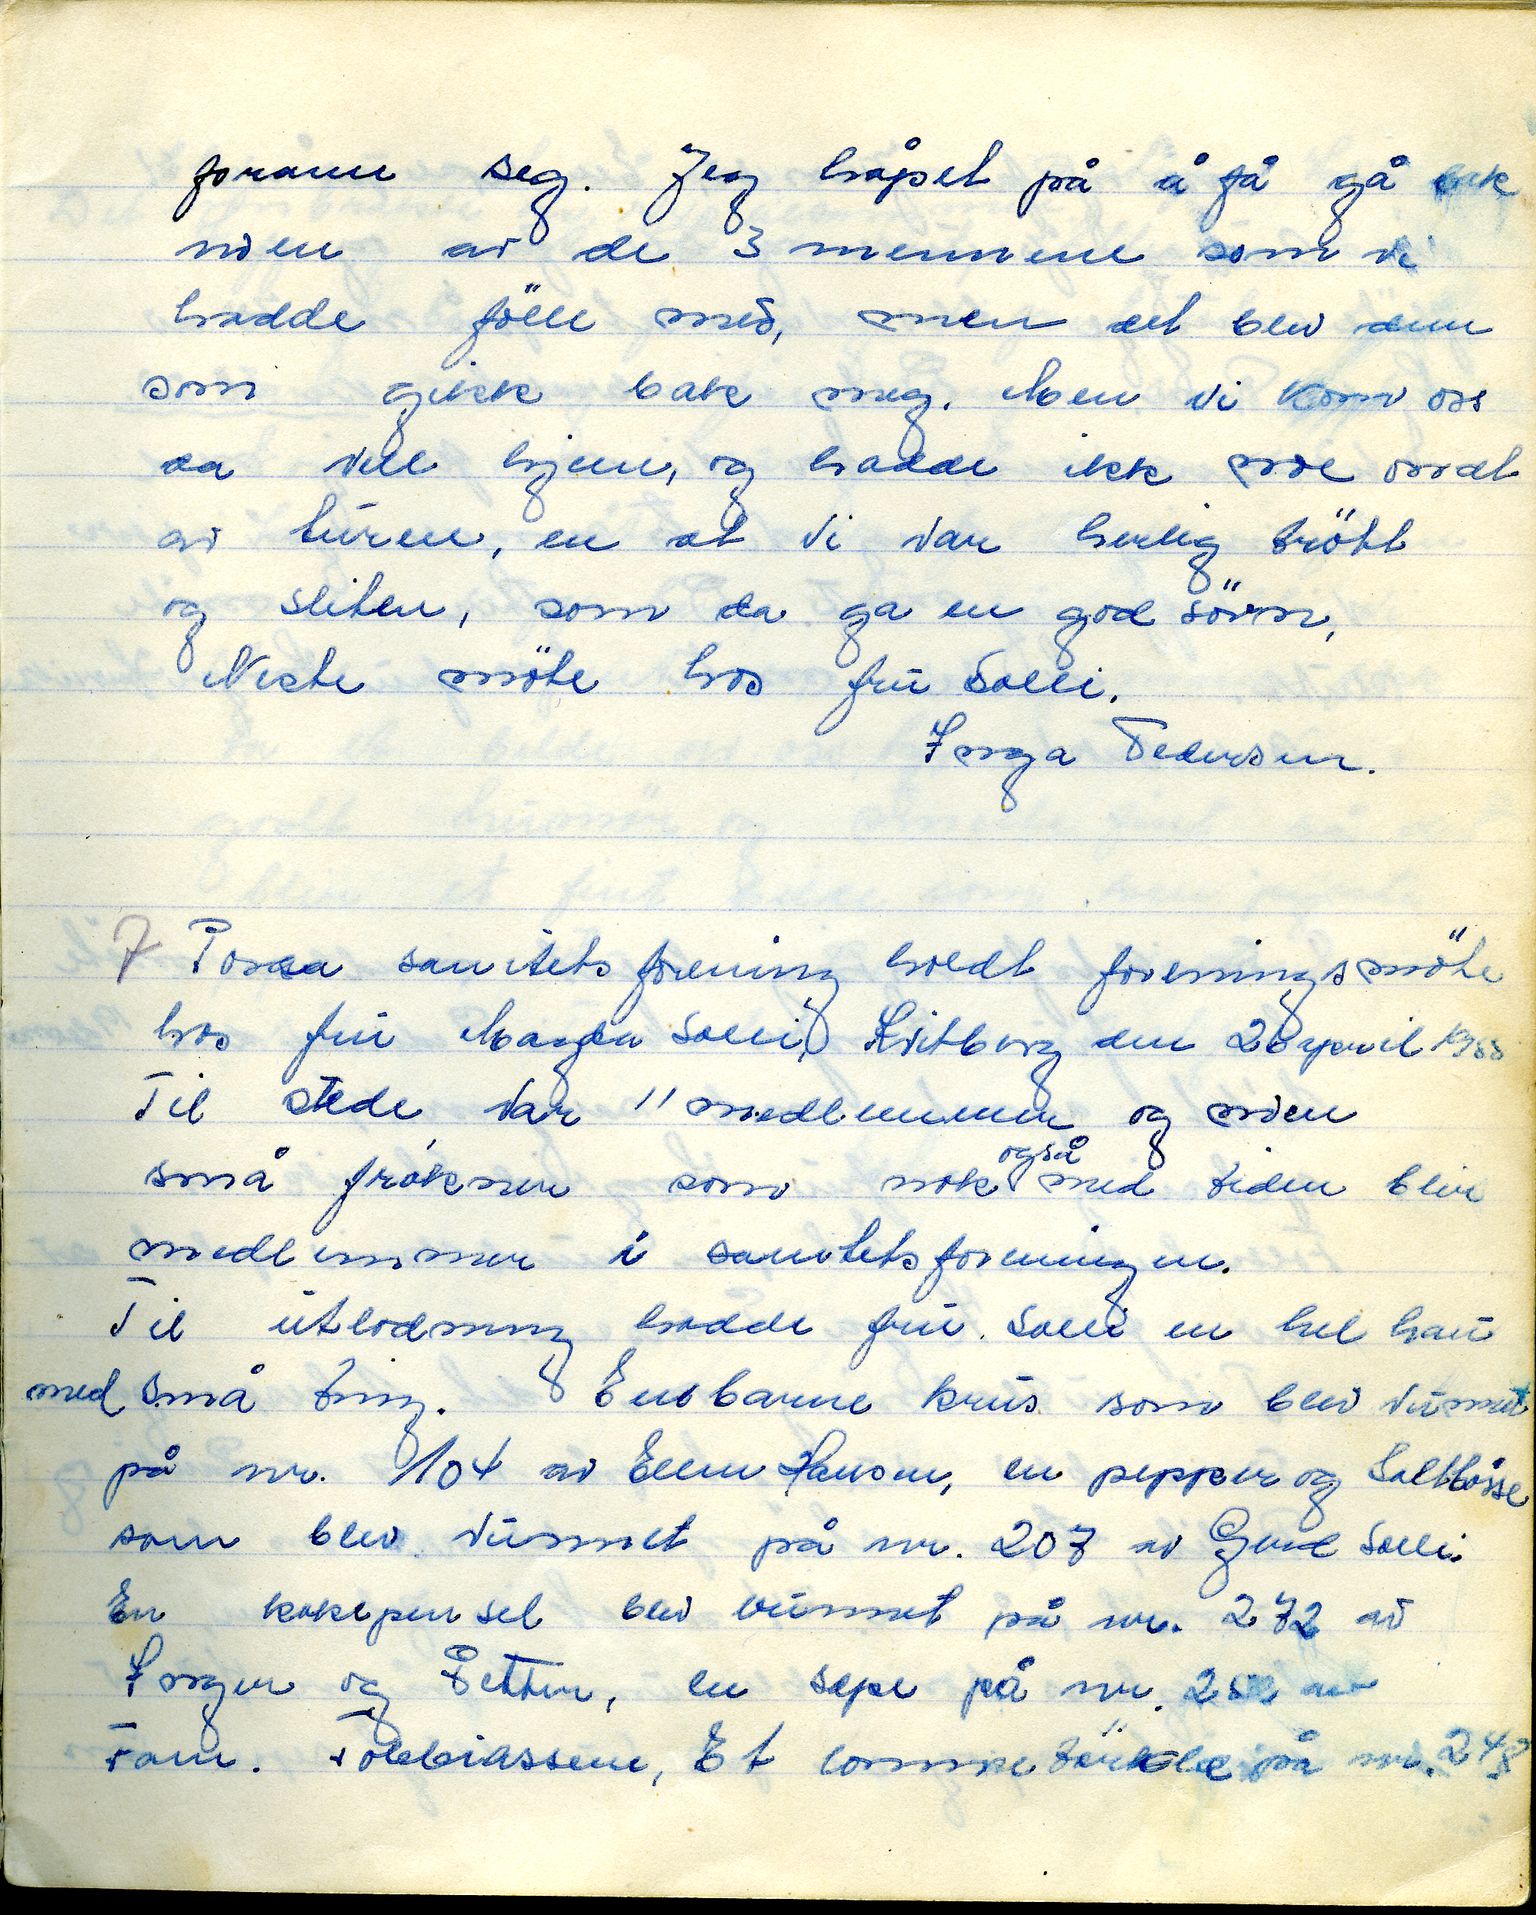 forann seg. Jeg håpet på å få gå bak
noen av de 3 mennene som vi
hadde följe med, men det blev dem
som gikk bak meg. Men vi kom oss
da vell hjem, og hadde ikk noe vondt
av türen, en at vi var herlig trött
og sliten, som da ga en god sövn,
Neste möte hos frü Solli.
Inga Pedersen.
7 Porsa sanitetsforening holdt foreningsmöte
hos frü Magda Solli, Kvitberg den 26 april 1955
Til stede var 11 medlemmer og noen
også
små frökner som nok med tiden blir
medlemmer i sanitetsforeningen.
Til ütlodning hadde frü Solli en hel haü
med små ting. En barne krüs som blev vünnet
på nr. 104 av Ellen Hansen, en pepper og Saltbösse
som blev vünnet på nr. 207 av Gerd Solli.
En kakepensel blev vünnet på nr. 272 av
Inger og Petter, en sepe på nr. av
Fam. Tobbiassen, Et lomme törkle på nr. 248